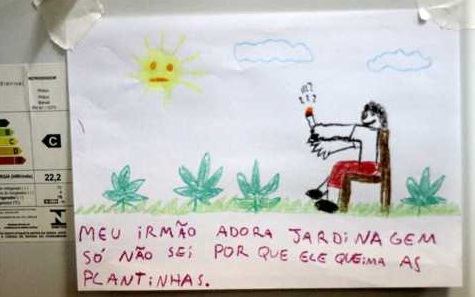 MEU IRMÃO ADORA JARDINAGEM
SÓ NÃO SEI POR QUE ELE QUEIMA AS
PLANTINHAS.
C
22,2